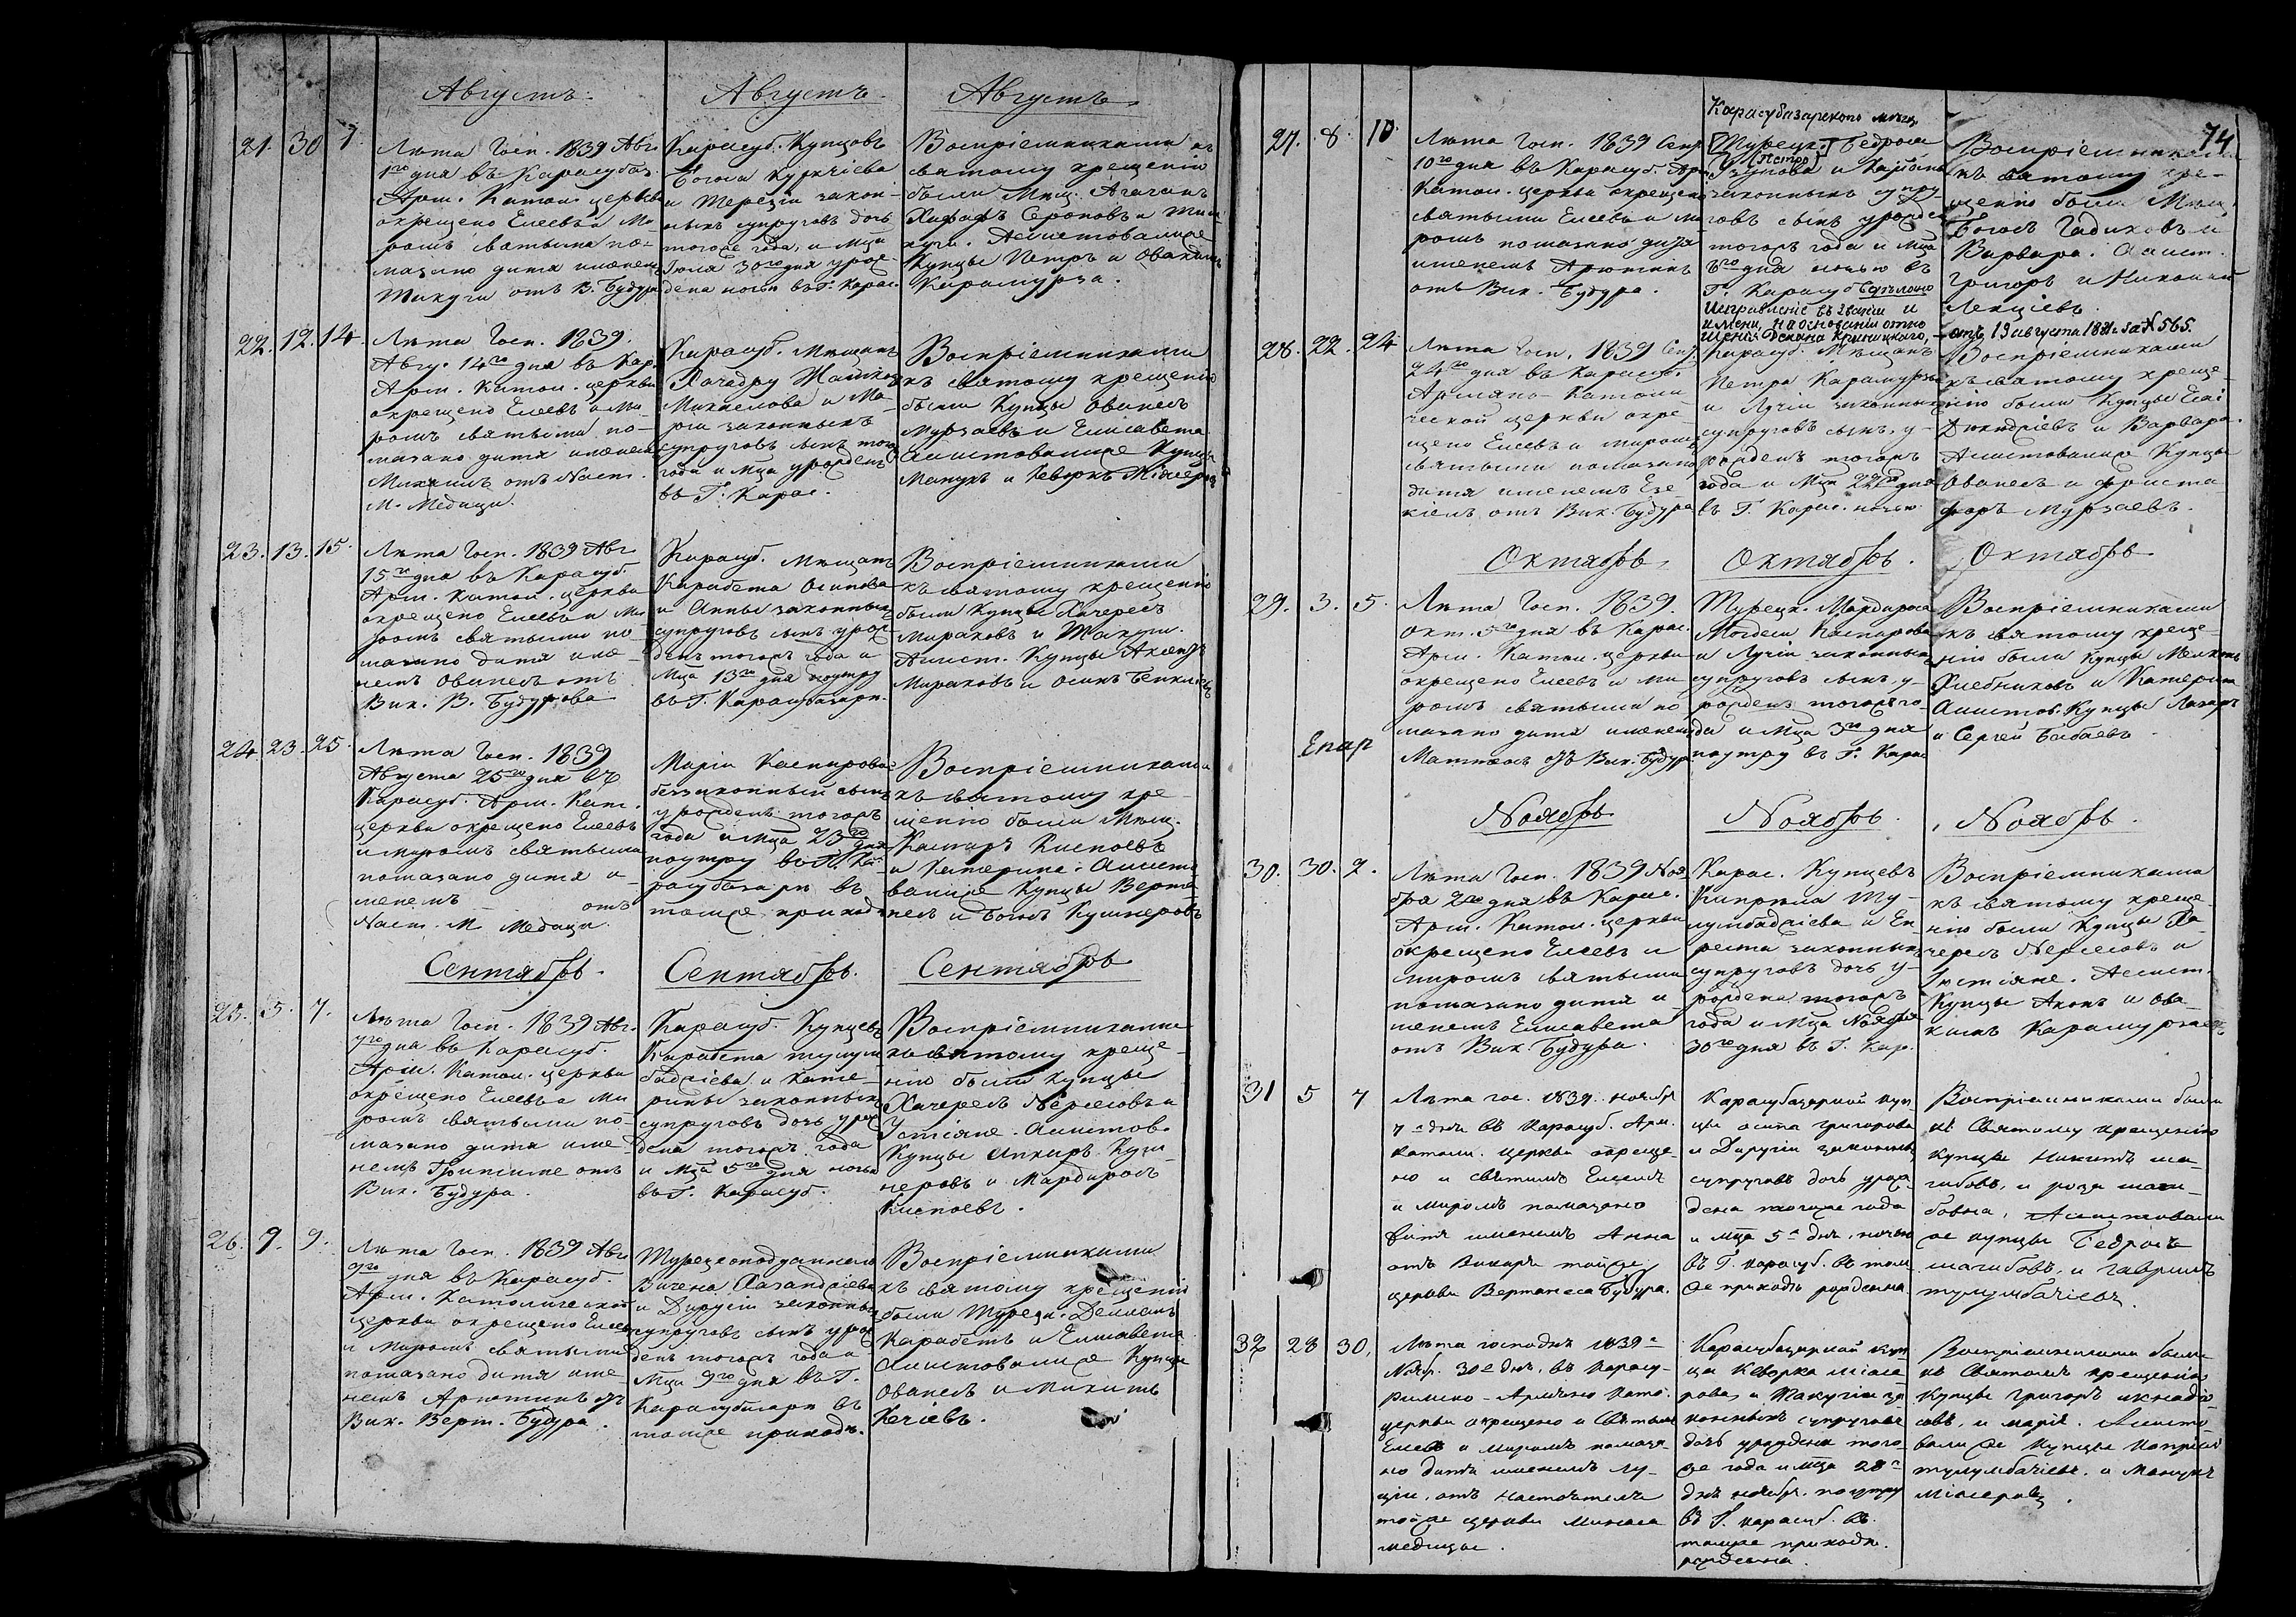 Августъ.
Августъ.
Августъ.
21. 30 1.
Лѣта Госп. 1839 Авг.
1го дня въ Карасубаз.
Арм. Катол. церкви
окрещено Елеевъ и Ми-
ромъ святымъ по-
мазано дитя именемъ
Такуги отъ В. Будура
Карасуб. Купцовъ
Богоса
и Терезіи закон-
ныхъ супруговъ дочь
тогоже года, и Мца
Іюля 30го дня урож-
дена ночью въ Г. Карас.
Воспріемниками къ
святому крещенію
были Мѣщ.
Серопова и
Асистовалисе
Купцы Петръ и Овакимъ
Карамурза.
22. 12. 14.
Лѣта Госп. 1839.
Авгу. 14го дня въ Кар.
Арм. Катол. церкви
окрещено Елеевъ и Ми-
ромъ святымъ по-
мазано дитя именемъ
Михаилъ отъ Наст.
М. Медици.
Карасуб. Мѣщанъ
Хачедру
Михаелова и Ма-
ріи законныхъ
супруговъ сынъ тогоже
года и Мца урожденъ
въ Г. Карас.
Воспріемниками
къ святому крещенію
были Купцы Ованесъ
Мурзаевъ и Елисавета
Асистовалисе Купцы
Манукъ и Кеворкъ
23. 13. 15.
Лѣта Госп. 1839 Авг.
15го дня въ Карасуб.
Арм. Катол. церкви
окрещено Елеевъ и Ми-
ромъ святымъ по-
мазано дитя име-
немъ Ованесъ отъ
Вик. В. Будурова
Карасуб. Мѣщанъ
Карабета Осипова
и Анны законныхъ
супруговъ сынъ урож-
денъ тогожъ года и
Мца 13го дня поутру
въ Г. Карасубазари.
Воспріемниками
къ святому крещенію
были Купцы Хачересъ
Мираковъ и Такуги.
Асист. Купцы
Мираковъ и Осипъ
24. 23. 25.
Лѣта Госп. 1839
Августа 25го дня въ
Карасуб. Арм. Кат.
церкви окрещено Елеевъ
и Миромъ святымъ
помазано дитя и-
менемъ отъ
Наст. М. Медици.
Маріи Каспаровъ
беззаконный сынъ
урожденъ тогожъ
года и Мца 23го дня
поутру въ Г. Ка-
расубазари въ
томже приходѣ
Воспріемниками
къ святому кре-
щенію были Мѣщ.
Каспаръ Киспоевъ
и Катерина. Асисто-
валисе Купцы Верта-
несъ и Богосъ Кушнеровъ
Сентябрь.
Сентябрь.
Сентябрь.
25. 5. 7.
Лѣта Госп. 1839 Авг.
7го дня въ Карасуб.
Арм. Катол. церкви
окрещено Елеевъ и Ми
ромъ святымъ по-
мазано дитя име-
немъ отъ
Вик. Будура.
Карасуб. Купцовъ
Карабета тулум-
баджіева и Кате-
рины законныхъ
супруговъ дочь урож
дена тогожъ года
и Мца 5го дня ночью
въ Г. Карасуб.
Воспріемниками
къ святому креще-
нію были Купцы
Хачересъ Нерсесовъ и
Устіяне. Асистов.
Купцы Куш-
неровъ и Мардиросъ
Киспоевъ.
26. 9. 9.
Лѣта Госп. 1839 Авг.
9го дня въ Карасуб.
Арм. Католической
церкви окрещено Елеевъ
и Миромъ святымъ
помазано дитя име-
немъ Арютинъ отъ
Вик. Верт. Будура.
Турецкоподданныхъ
Вичена Хазанджіева
и Дирусіи законныхъ
супруговъ сынъ урож
денъ тогожъ года и
Мца 9го дня въ Г.
Карасубазари въ
томже приходѣ.
Воспріемниками
къ святому крещенію
были Турецк.
Карабетъ и Елисавета
Асистовалисе Купцы
Ованесъ и Микитъ
Кечіевъ.
74
27. 8. 10.
Лѣта Госп. 1839 Сент.
10го дня въ Карасуб. Арм
Катол. церкви окрещено
святымъ Елеевъ и ми
ромъ помазано дитя
именемъ Арютинъ
отъ Вик. Будура.
Карасубазарскаго мѣщ.
[Турецк.] Бедроса
(Петра)
законныхъ супру-
говъ сынъ урожден
тогожъ года и Мца
8го дня ночью въ
Г. Карасуб. Сдѣлано
Исправленіе въ званіи и
имени, на основаніи отно
шенія Декана Криницкаго,
отъ 19 августа 1881 г. за № 565.
Воспріемниками
къ святому кре-
щенію были Мѣщ.
Богосъ Гадиковъ и
Варвара. Асист.
Григоръ и Николай
Лекціевъ.
28. 22. 24
Лѣта Госп. 1839 Сент.
24го дня въ Карасуб.
Армяно-Католи-
ческой церкви окре-
щено Елеевъ и миромъ
святымъ помазано
дитя именемъ Езе-
кіелъ отъ Вик. Будура
Карасуб. Мѣщанъ
Петра Карамурзы
и Лучіи законныхъ
супруговъ сынъ, у-
рожденъ тогожъ
года и Мца 22го дня
въ Г. Карас. ночью
Воспріемниками
къ святому креще-
нію были Купцы
и Варвара.
Асистовалисе Купцы
Ованесъ и Христа-
форъ Мурзаевъ.
Октябрь.
Октябрь.
Октябрь
29. 3. 5.
Лѣта Госп. 1839.
Окт. 5го дня въ Карас.
Арм. Катол. церкви
окрещено Елеевъ и ми
ромъ святымъ по
мазано дитя именемъ
отъ Вик. Будура
Епар
Турецк. Мардироса
Каспарова
и Лучіи законныхъ
супруговъ сынъ, у-
рожденъ тогожъ го-
да и Мца 3го дня
поутру въ Г. Карас
Воспріемниками
къ святому креще-
нію были Купцы Мелконъ
Хлебниковъ и Катерина
Асистов. Купцы Лазаръ
и Сергей Бабаевъ.
Ноябрь
Ноябрь.
Ноябрь.
30. 30. 2.
Лѣта Госп. 1839 Ноя-
бра 2го дня въ Карас.
Арм. Катол. церкви
окрещено Елеевъ и
миромъ святымъ
помазано дитя и
менемъ Елисавета
отъ Вик. Будура.
Карас. Купцевъ
Ту-
лумбаджіева и Еп
законныхъ
супруговъ дочь у-
рождена тогожъ
года и Мца Ноября
30го дня въ Г. Кар.
Воспріемниками
къ святому креще-
нію были Купцы Ха-
чересъ Нерсесовъ и
Асист.
Купцы Акопъ и Ова-
кимъ Карамурзаевъ
31 5 7
Лѣта гос. 1839. ноября
7 дня въ Карасуб. Арм.
Католи. церкви окреще-
но и святымъ Елеемъ
и миромъ помазано
дитя именемъ Анна
отъ Викарія тойже
церкви Вертанеса Будура.
Карасубазарской куп-
ца осипа григорова
и Дируги законныхъ
супруговъ дочь урож-
дена тогоже года
и мца 5 дня, ночью
въ Г. карасуб. въ том-
же приходѣ рождена.
Воспріемниками были
къ Святому крещенію
купцы Никитъ ша-
гибовъ, и роза шаги-
бовна, Асистовали
се купцы Бедросъ
шагибовъ, и Гаврилъ
тулумбачіевъ.
32 28 30,
Лѣта господня 1839
Нояб. 30 дня, въ Карасу-
Римско-Армяно Като.
церкви окрещено и Святымъ
Елеевъ и миромъ помаза-
но дитя именемъ Лу-
ціи, отъ Настоятеля
тойже церкви Минаса
медици.
Карасубазарской куп
ца Кеворка
рова, и Такугіи за
конныхъ супруговъ
дочь урождена того-
же года и мца 28
дня ноября. поутру
въ Г. карасуб. въ
томже приходѣ.
рождена.
Воспріемниками были
къ Святомъ крещенію
Купцы григоръ
и марія. Асисто-
вали се Купцы
тулумбачіевъ. и Манукъ